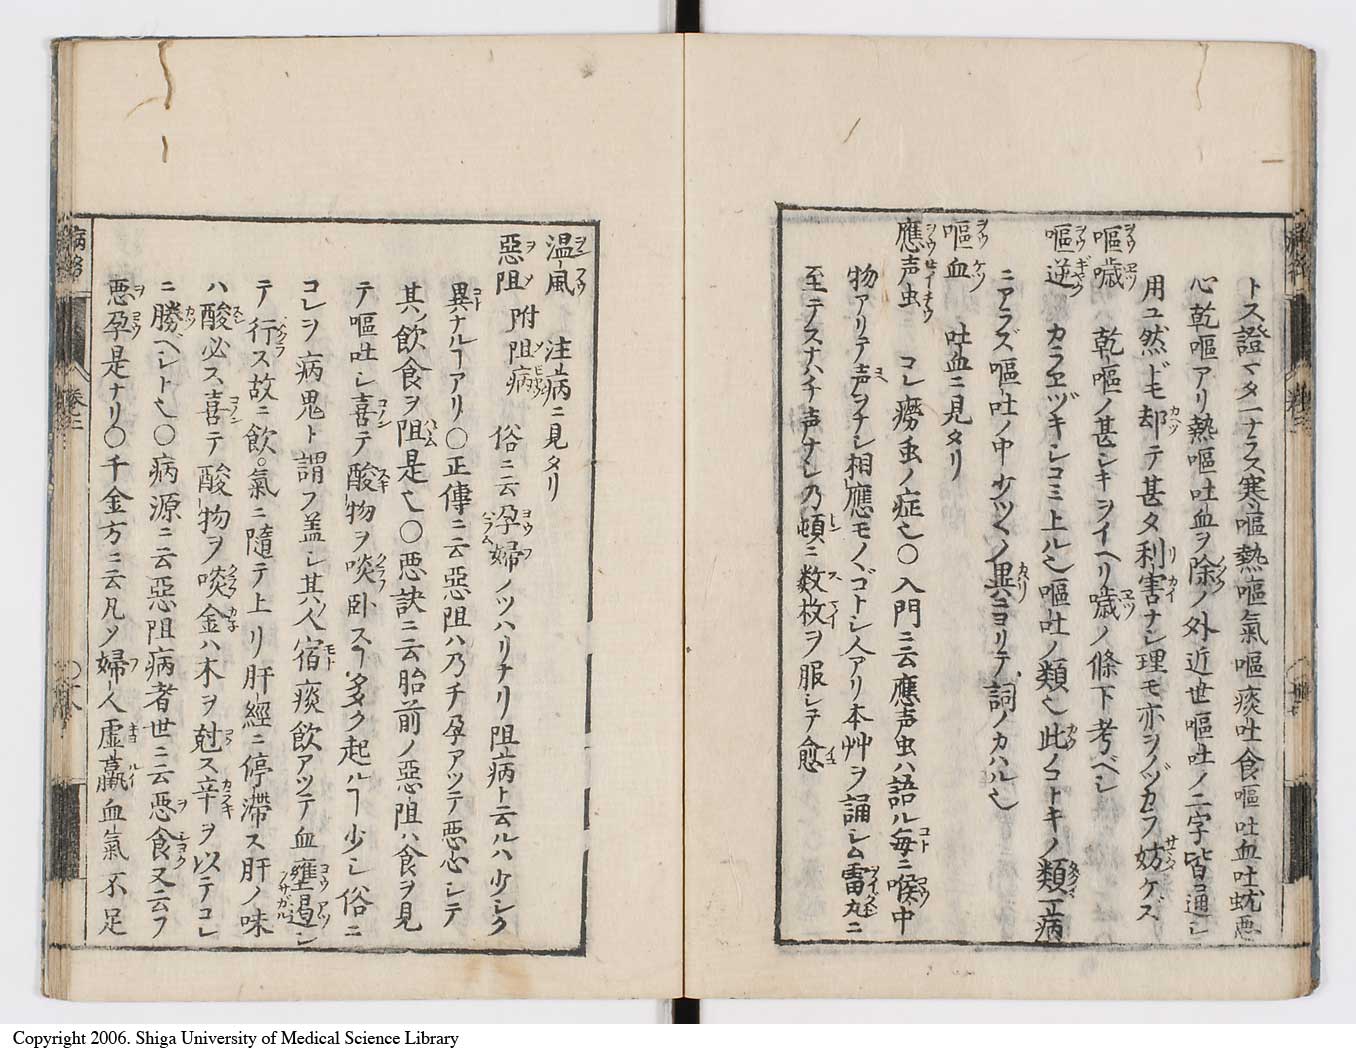 トス證マタ一ナラス寒嘔熱嘔氣嘔痰吐食嘔吐血吐蚘悪
心乾嘔アリ熱嘔吐血ヲ除ノ外近世嘔吐ノ二字皆通シ
用ユ然ドモ却テ甚タ利害ナシ理モ亦ヲノヅカラ妨ケズ
嘔噦 乾嘔ノ甚シキヲイヘリ噦ノ條下考ベシ
嘔逆 カラヱヅキシコミ上ル也嘔吐ノ類也此ノコトキノ類正病
ニアラズ嘔吐ノ中少ツヽノ異ニヨリテ詞ノカハル也
嘔血 吐血ニ見タリ
應声虫 コレ癆虫ノ症也〇入門ニ云應声虫ハ語ル毎ニ喉中
物アリテ声ヲナシ相應モノヽゴトシ人アリ本艸ヲ誦シム雷丸ニ
至テスナハチ声ナシ乃頓ニ数枚ヲ服シテ愈
温風 注病ニ見タリ
惡阻 附阻病 俗ニ云孕婦ノツハリナリ阻病ト云ルハ少シク
異ナルヿアリ〇正傳ニ云惡阻ハ乃チ孕アツテ悪心シテ
其飲食ヲ阻是也〇悪訣ニ云胎前ノ惡阻ハ食ヲ見
テ嘔吐シ喜テ酸物ヲ啖卧スヿ多ク起ルヿ少シ俗ニ
コレヲ病鬼ト謂フ盖シ其人宿痰飲アツテ血壅遏シ
テ行ス故ニ飲氣ニ隨テ上リ肝經ニ停滯ス肝ノ味
ハ酸必ス喜テ酸物ヲ啖金ハ木ヲ尅ス辛ヲ以テコレ
ニ勝ベシト也〇病源ニ云惡阻病者世ニ云悪食又云フ
悪孕是ナリ〇千金方ニ云凡ソ婦人虚羸血氣不足
病名
巻之三
〇十八
Copyright 2006. Shiga University of Medical Science Library